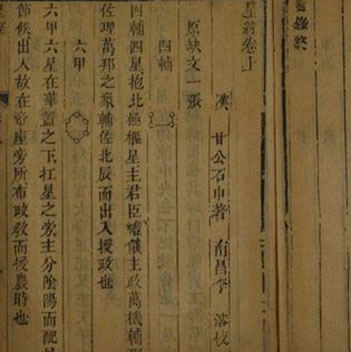 星經卷上
漢　甘公石申著　南昌李　校
原缺文一張
四輔
四輔四星抱北極樞星主君臣禮儀主政萬機輔
佐理萬邦之象輔佐北辰而出入授政也
六甲
六甲六星在華蓋之下杠星之旁主分陰陽而配
節候出入故在帝座旁所布政教而授農時也